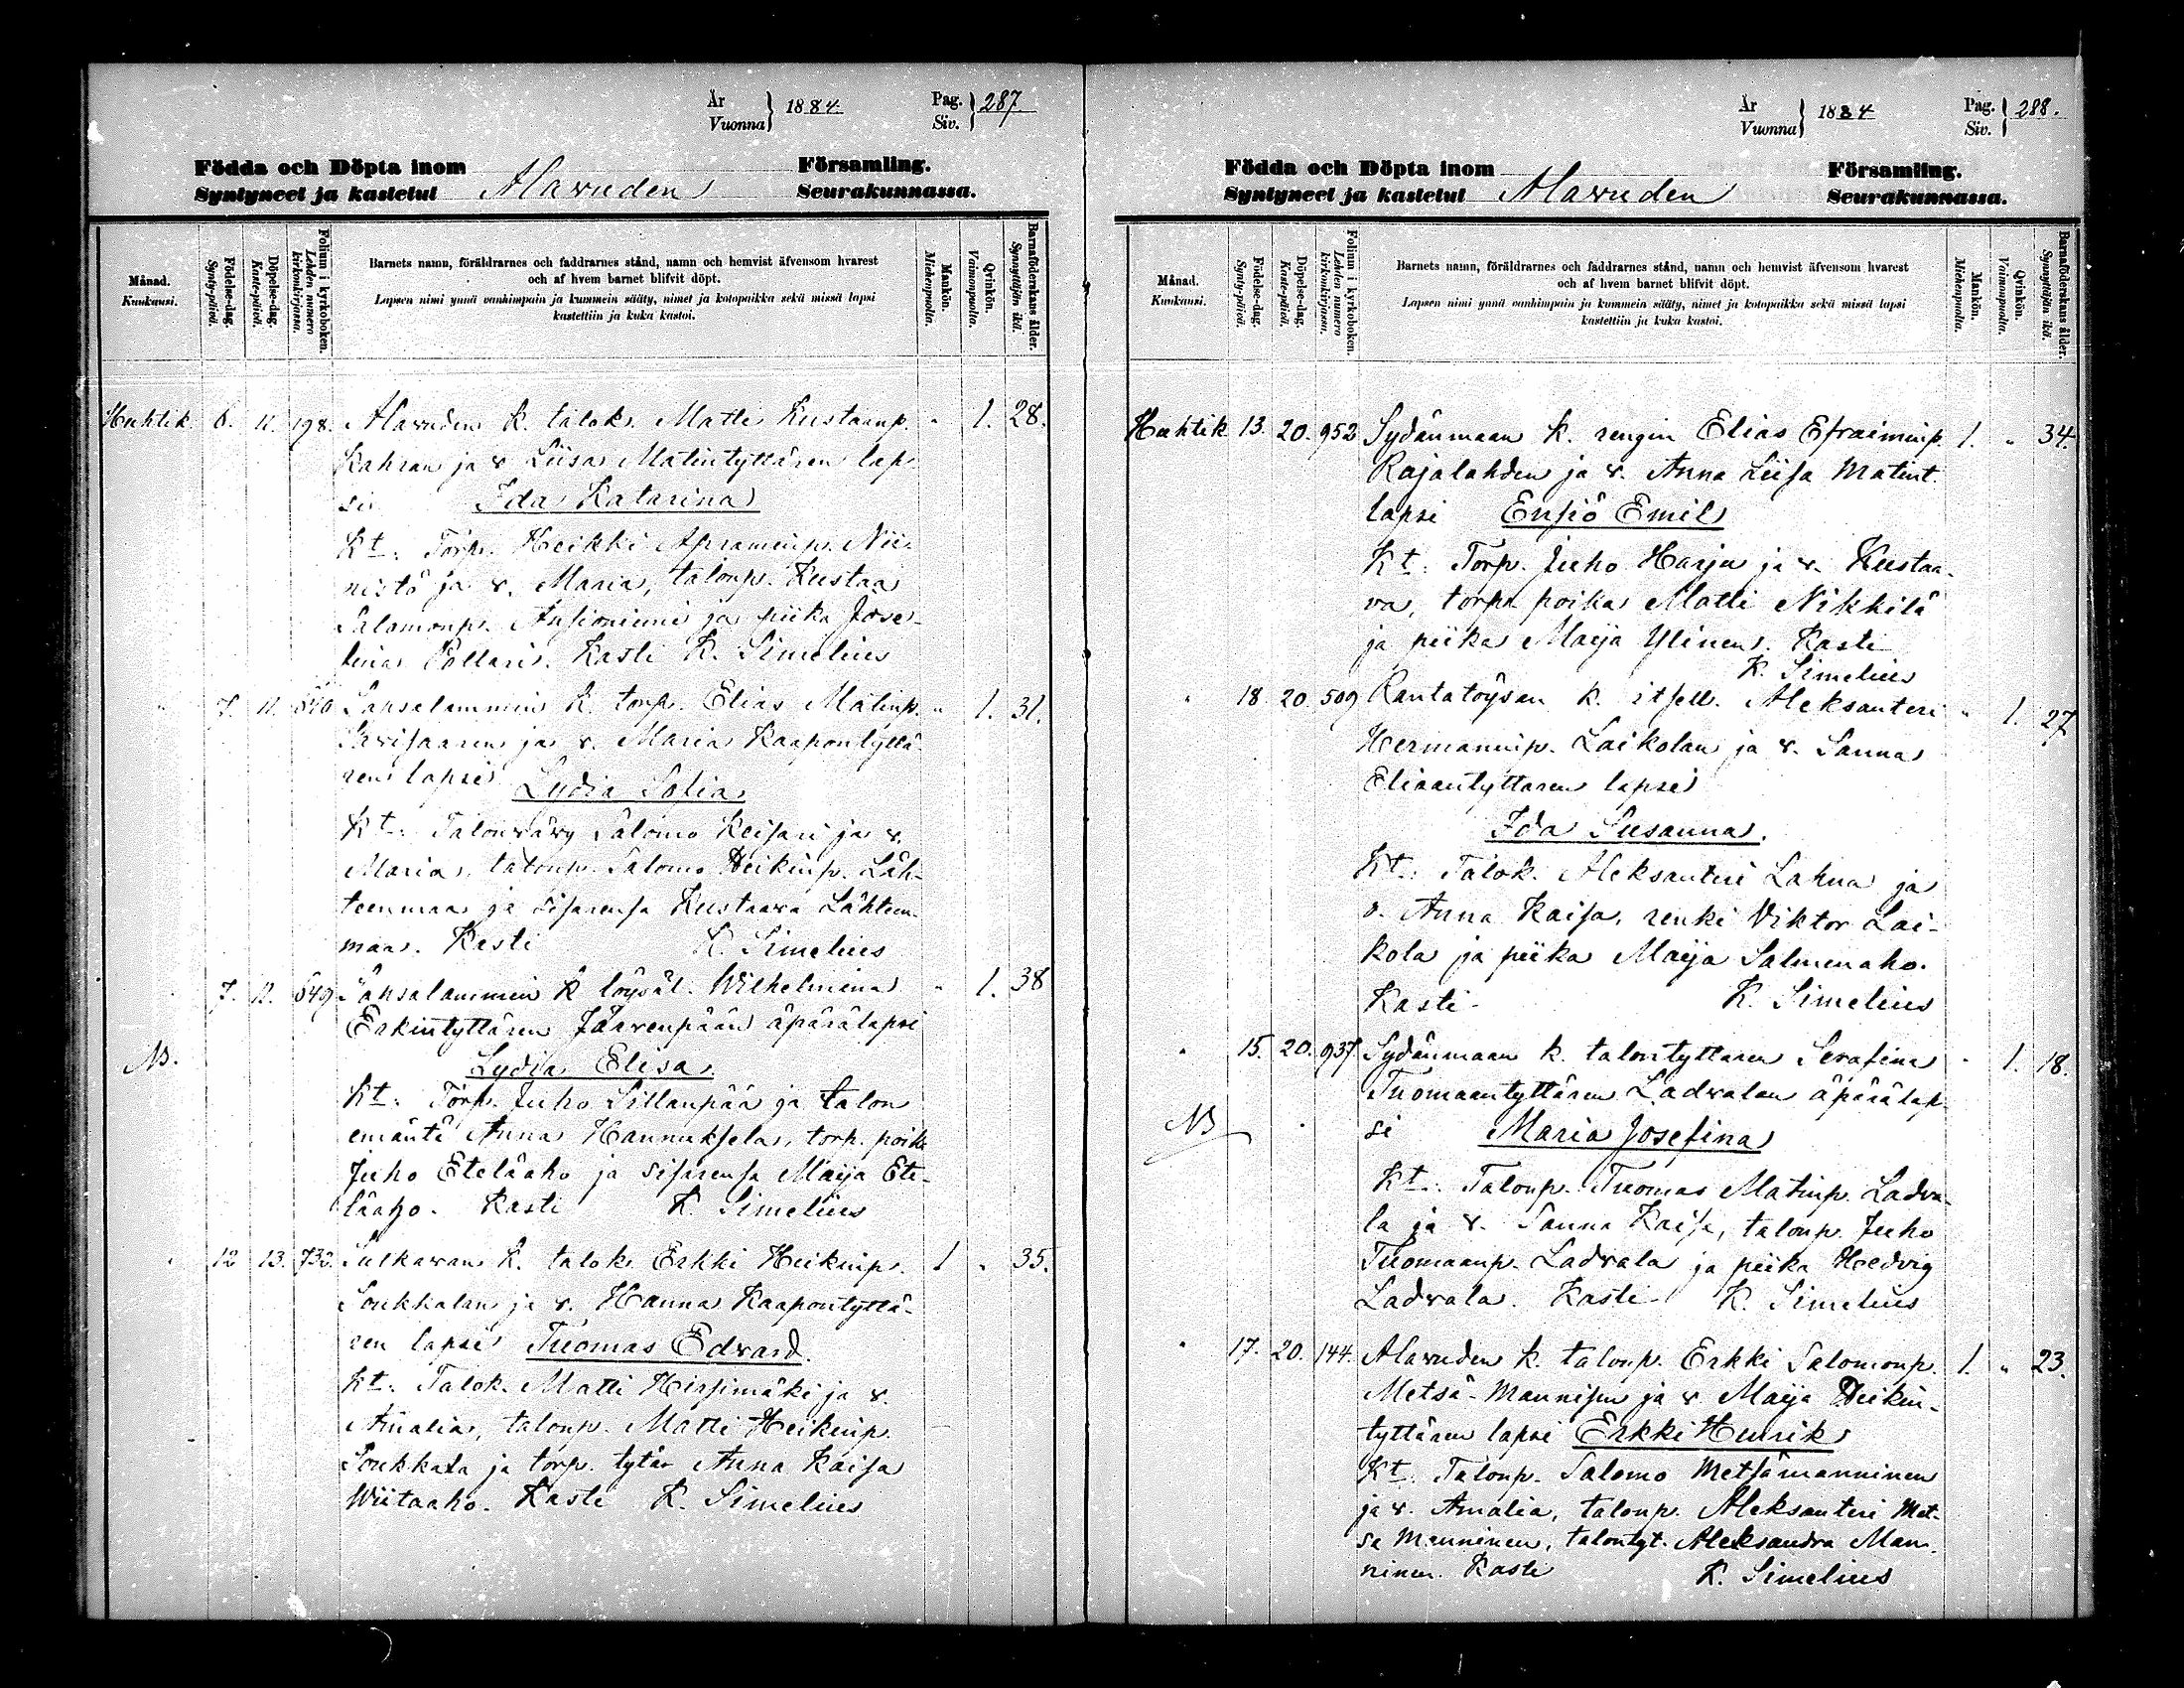 År
Vuonna 1884.
Pag.
Siv. 287.
Födda och Döpta inom Församling.
Syntyneet ja kastetut Alavuden Seurakunnassa.
Månad.
Kuukausi.
Födelse-dag.
Synty-päivä.
Döpelse-dag.
Kaste-päivä.
Folium i kyrkoboken.
Lehden numero kirkonkirjassa.
Barnets namn, föräldrarnes och faddrarnes stånd, namn och hemvist äfvensom hvarest
och af hvem barnet blifvit döpt.
Lapsen nimi ynnä vanhimpain ja kummein sääty, nimet ja kotopaikka sekä missä lapsi
kastettiin ja kuka kastoi.
Mankön.
Miehenpuolta.
Qvinkön.
Vaimonpuolta.
Barnaföderskans ålder.
Synnyttäjän ikä.
Huhtik. 6. 11. 198. Alavuden k. talok. Matti Kustaanp. " 1. 28.
Kahran ja v. Liisa Matintyttären lap-
si Ida Katarina
Kt: Torp. Heikki Apraminp. Nii-
nistö ja v. Maria, talonp. Kustaa
Salomonp. ja piika Jose-
fina Pollari. Kasti K. Simelius
" 7. 11. Sapsalammin k. torp. Elias Matinp. " 1. 31.
Savisaaren ja v. Maria Kaapontyttä-
ren lapsi Lydia Sofia
Kt: Talonvävy Salomo Keisari ja v.
Maria, talonp. Salomo Heikinp. Läh-
teenmaa ja sisarensa Kustaava Lähteen-
maa. Kasti K. Simelius
" 7. 11. 549 Sapsalammin k löysäl. Wilhelmina " 1. 38
Erkintyttären Järvenpään äpärälapsi
NB. Lydia Elisa.
Kt: Torp. Juho Sillanpää ja talon
emäntä Anna Hannuksela, torp. poika
Juho Eteläaho ja sisarensa Maija Ete-
läaho. Kasti K. Simelius
" 12 13. 732. Sulkavan k. talok. Erkki Heikinp. 1 " 35.
Soukkalan ja v. Hanna Kaapontyttä-
ren lapsi Tuomas Edvard.
Kt: Talok. Matti Hirsimäki ja v.
Amalia, talonp. Matti Heikinp.
Soukkala ja torp. tytär Anna Kaisa
Wiitaaho. Kasti K. Simelius
År
Vuonna 1884
Pag.
Siv. 288.
Födda och Döpta inom Församling.
Syntyneet ja kastetut Alavuden Seurakunnassa.
Månad.
Kuukausi.
Födelse-dag.
Synty-päivä.
Döpelse-dag.
Kaste-päivä.
Folium i kyrkoboken.
Lehden numero kirkonkirjassa.
Barnets namn, föräldrarnes och faddrarnes stånd, namn och hemvist äfvensom hvarest
och af hvem barnet blifvit döpt.
Lapsen nimi ynnä vanhimpain ja kummein sääty, nimet ja kotopaikka sekä missä lapsi
kastettiin ja kuka kastoi.
Mankön.
Miehenpuolta.
Qvinkön.
Vaimonpuolta.
Barnaföderskans ålder.
Synnyttäjän ikä.
Huhtik 13. 20. 952 Sydänmaan k. rengin Elias Efraiminp. 1. " 34.
Rajalahden ja v. Anna Liisa Matint.
lapsi Ensiö Emil
Kt: Torp. Juho Harju ja v. Kustaa-
va, torpn poika Matti Nikkilä
ja piika Maija Ylinen. Kasti
K. Simelius
" 18. 20 509 Rantatöysän k. itsell. Aleksanteri " 1. 27
Hermanninp. Laikolan ja v. Sanna
Eliaantyttaren lapsi
Ida Susanna.
Kt: Talok. Aleksanteri Lahna ja
v. Anna Kaisa, renki Viktor Lai-
kola ja piika Maija Salmenaho.
Kasti K. Simelius
" 15. 20. 937 Sydänmaan k. talontyttaren Serafina " 1. 18.
Tuomaantyttären Ladvalan äpärälap-
NB si Maria Josefina
Kt: Talonp. Tuomas Matinp. Ladva-
la ja v. Sanna Kaisa, talonp. Juho
Tuomaanp. Ladvala ja piika Hedvig
Ladvala. Kasti K. Simelius
" 17. 20. 144. Alavuden k. talonp. Erkki Salomonp. 1. " 23.
Metsä-Mannisen ja v. Maija Heikin-
tyttären lapsi Erkki Henrik
Kt. Talonp. Salomo Metsämanninen
ja v. Amalia, talonp. Aleksanteri Met-
sä Manninen, talontyt. Aleksandra Man-
ninen. Kasti K. Simelius